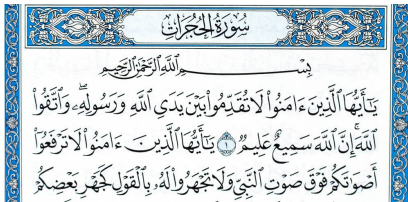 سُورَةُ الحُجُرَاتِ
بِسْمِ اللَّهِ الرَّحْمَٰنِ الرَّحِيمِ
يَٰٓأَيُّهَا الَّذِينَ ءَامَنُوا۟ لَا تُقَدِّمُوا۟ بَيْنَ يَدَيِ اللَّهِ وَرَسُولِهِۦ ۖ وَاتَّقُوا۟
اللَّهَ ۚ إِنَّ اللَّهَ سَمِيعٌ عَلِيمٌ ۝١ يَٰٓأَيُّهَا الَّذِينَ ءَامَنُوا۟ لَا تَرْفَعُوٓا۟
أَصْوَٰتَكُمْ فَوْقَ صَوْتِ النَّبِيِّ وَلَا تَجْهَرُوا۟ لَهُۥ بِالْقَوْلِ كَجَهْرِ بَعْضِكُمْ